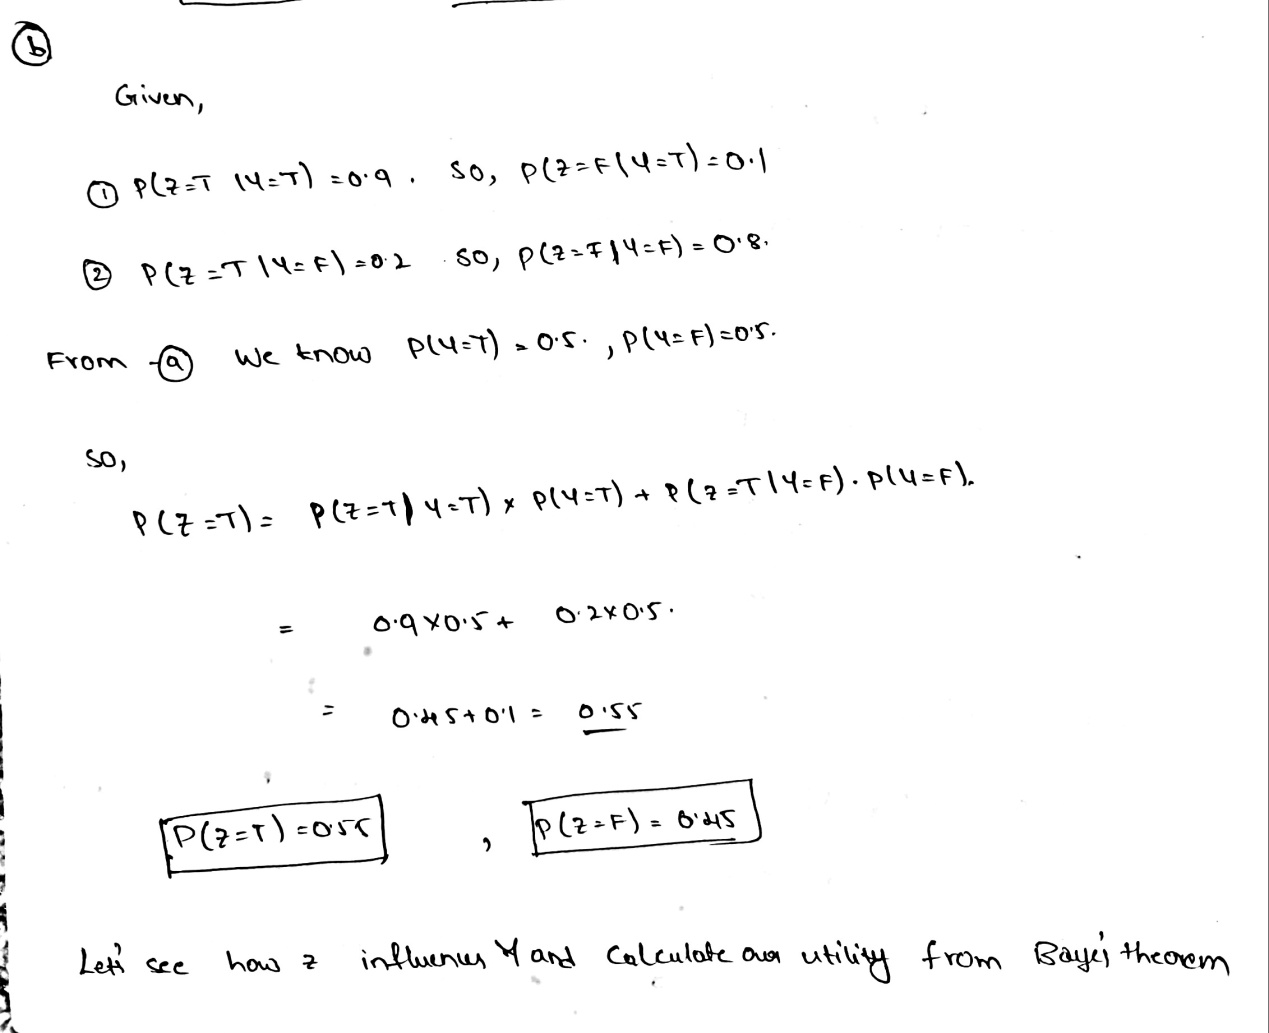 (b)
Given,
① P(Z=T | Y=T) = 0.9. so, P(Z=F | Y=T) = 0.1
② P(Z=T | Y=F) = 0.2 so, P(Z=F | Y=F) = 0.8.
From (a) We know P(Y=T) = 0.5. , P(Y=F) = 0.5.
so,
P(Z=T) = P(Z=T | Y=T) × P(Y=T) + P(Z=T | Y=F) . P(Y=F).
= 0.9×0.5 + 0.2×0.5.
= 0.45+0.1 = 0.55
P(Z=T) = 0.55 , P(Z=F) = 0.45
Let's see how z influences Y and Calculate our utility from Baye's theorem